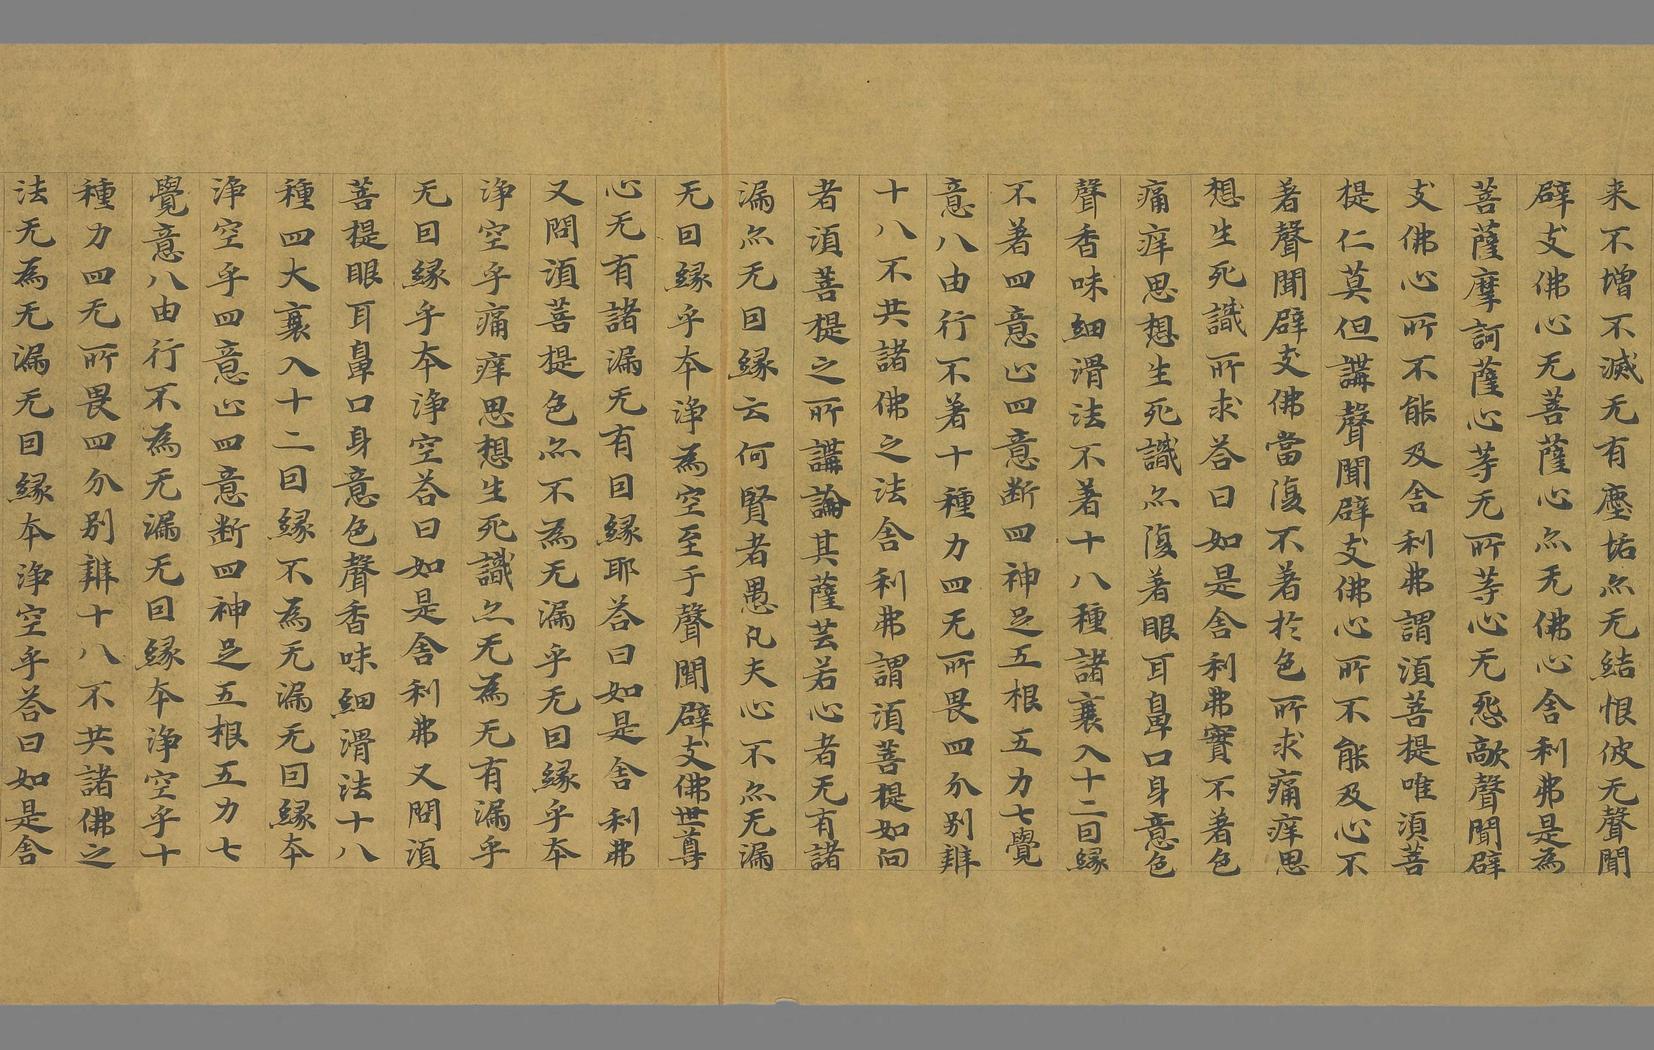 来不增不滅无有塵垢尒无結恨彼无聲聞
辟支佛心无菩薩心尒无佛心舎利弗是為
菩薩摩訶薩心等无所等心无怨敵聲聞辟
支佛心所不能及舎利弗謂湏菩提唯湏菩
提仁莫但講聲聞辟支佛心所不能及心不
著聲聞辟支佛當復不著於色所求痛痒思
想生死識所求荅曰如是舎利弗實不著色
痛痒思想生死識尒復著眼耳鼻口身意色
聲香味細滑法不著十八種諸衰入十二因縁
不著四意止四意断四神足五根五力七覺
意八由行不著十種力四无所畏四分別辯
十八不共諸佛之法舎利弗謂湏菩提如向
者湏菩提之所講論其薩芸若心者无有諸
漏尒无因縁云何賢者愚凡夫心不尒无漏
无因縁乎本淨為空至于聲聞辟支佛世尊
心无有諸漏无有因縁耶荅曰如是舎利弗
又問湏菩提色尒不為无漏乎无因縁乎本
淨空乎痛痒思想生死識尒无為无有漏乎
无因縁乎本淨空荅曰如是舎利弗又問湏
菩提眼耳鼻口身意色聲香味細滑法十八
種四大衰入十二因縁不為无漏无因縁本
淨空乎四意止四意断四神足五根五力七
覺意八由行不為无漏无因縁本淨空乎十
種力四无所畏四分別辯十八不共諸佛之
法无為无漏无因縁本淨空乎荅曰如是舎